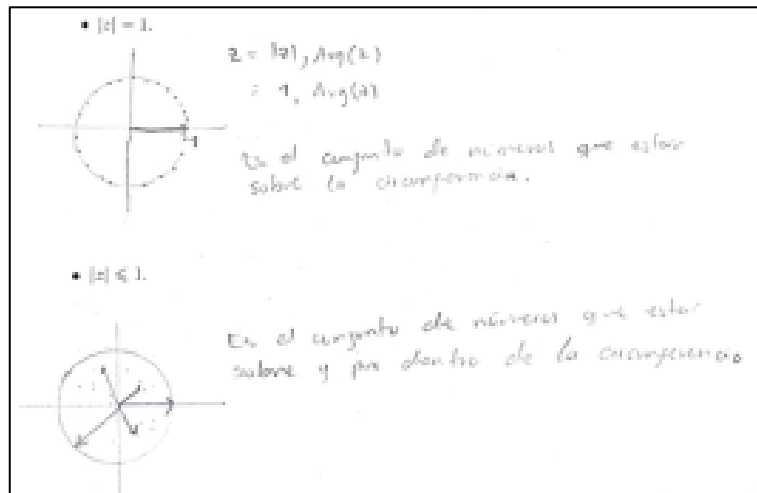 • |z| = 1.
z = |z|, Arg(z)
= 1, Arg(z)
1
Es el conjunto de números que estan
sobre la circunferencia.
• |z| ⩽ 1.
Es el conjunto de números que estan
sobre y por dentro de la circunferencia